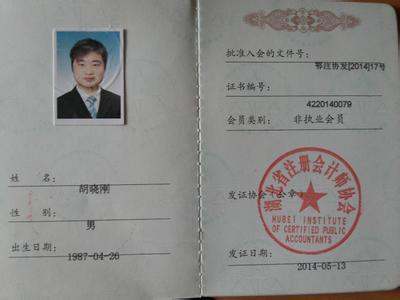 姓 名:
胡晓刚
性 别:
男
出生日期:
1987-04-26
批准入会的文件号:
鄂注协发[2014]17号
证书编号:
4220140079
会员类别: 非执业会员
发证协会(公章):
湖北省注册会计师协会
HUBEI INSTITUTE
OF CERTIFIED PUBLIC
ACCOUNTANTS
发证日期:
2014-05-13